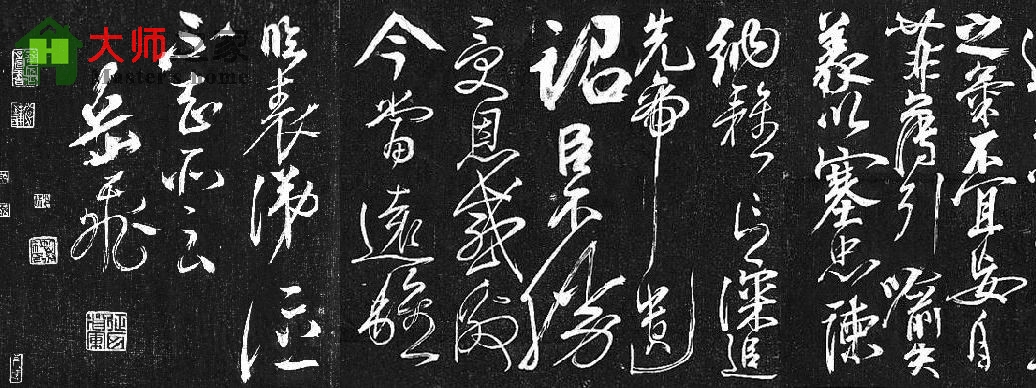 之氣不宜妄自
菲薄引喻失
義以塞忠諫
納雅言深追
先帝遺
詔臣不勝
受恩感激
今當遠離
臨表涕泣
不知所云
岳飛
H 大师之家
Master's home